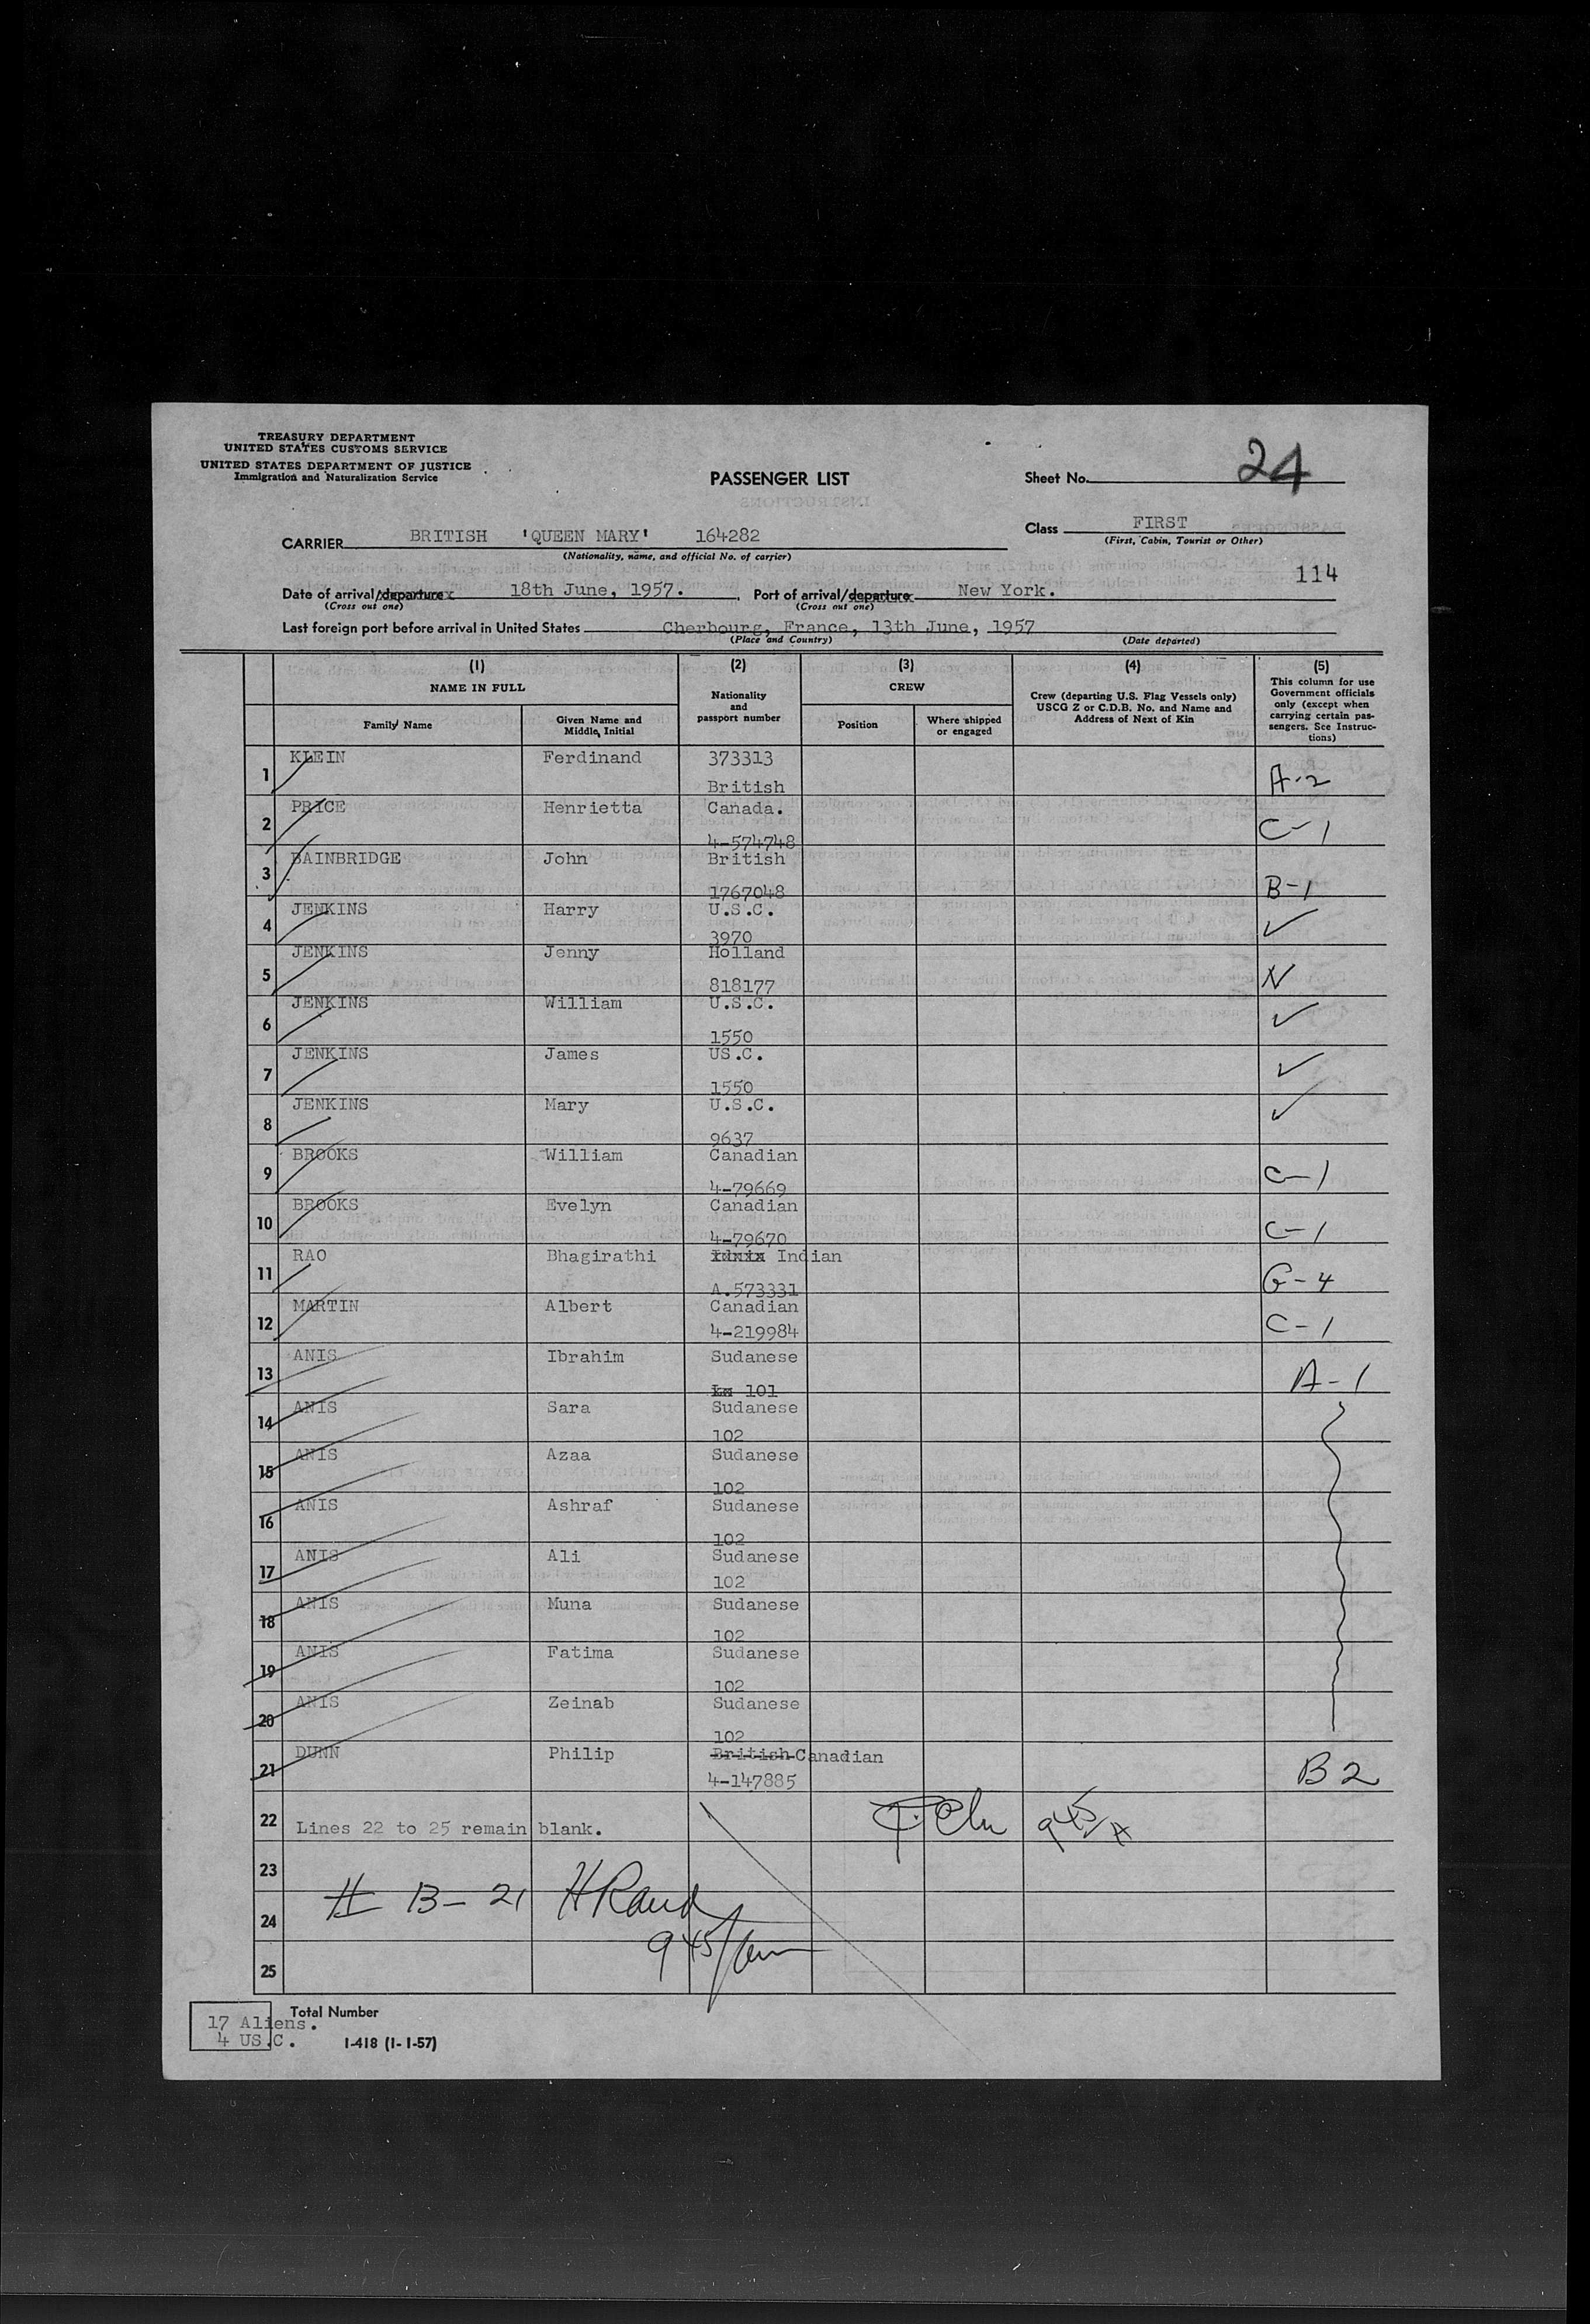 TREASURY DEPARTMENT
UNITED STATES CUSTOMS SERVICE
UNITED STATES DEPARTMENT OF JUSTICE
Immigration and Naturalization Service
PASSENGER LIST
Sheet No. 24
CARRIER BRITISH 'QUEEN MARY' 164282
(Nationality, name, and official No. of carrier)
Class FIRST
(First, Cabin, Tourist or Other)
114
Date of arrival/departure 18th June, 1957. Port of arrival/departure New York.
(Cross out one) (Cross out one)
Last foreign port before arrival in United States Cherbourg, France, 13th June, 1957
(Place and Country) (Date departed)
(1) (2) (3) (4) (5)
NAME IN FULL
Family Name
Given Name and Middle Initial
Nationality and passport number
CREW
Position
Where shipped or engaged
Crew (departing U.S. Flag Vessels only)
USCG Z or C.D.B. No. and Name and
Address of Next of Kin
This column for use
Government officials
only (except when
carrying certain pas-
sengers. See Instruc-
tions)
1 KLEIN Ferdinand 373313
British A-2
2 PRICE Henrietta Canada.
4-574748 C-1
3 BAINBRIDGE John British
1767048 B-1
4 JENKINS Harry U.S.C.
3970 ✓
5 JENKINS Jenny Holland
818177 N
6 JENKINS William U.S.C.
1550 ✓
7 JENKINS James US.C.
1550 ✓
8 JENKINS Mary U.S.C.
9637 ✓
9 BROOKS William Canadian
4-79669 C-1
10 BROOKS Evelyn Canadian
4-79670 C-1
11 RAO Bhagirathi Indian
A.573331 G-4
12 MARTIN Albert Canadian
4-219984 C-1
13 ANIS Ibrahim Sudanese
101 A-1
14 ANIS Sara Sudanese
102
15 ANIS Azaa Sudanese
102
16 ANIS Ashraf Sudanese
102
17 ANIS Ali Sudanese
102
18 ANIS Muna Sudanese
102
19 ANIS Fatima Sudanese
102
20 ANIS Zeinab Sudanese
102
21 DUNN Philip British Canadian
4-147885 B2
22 Lines 22 to 25 remain blank. 945/A
23
24 # 13-21 HRand
945/am
25
Total Number
17 Aliens.
4 US.C.
I-418 (1-1-57)